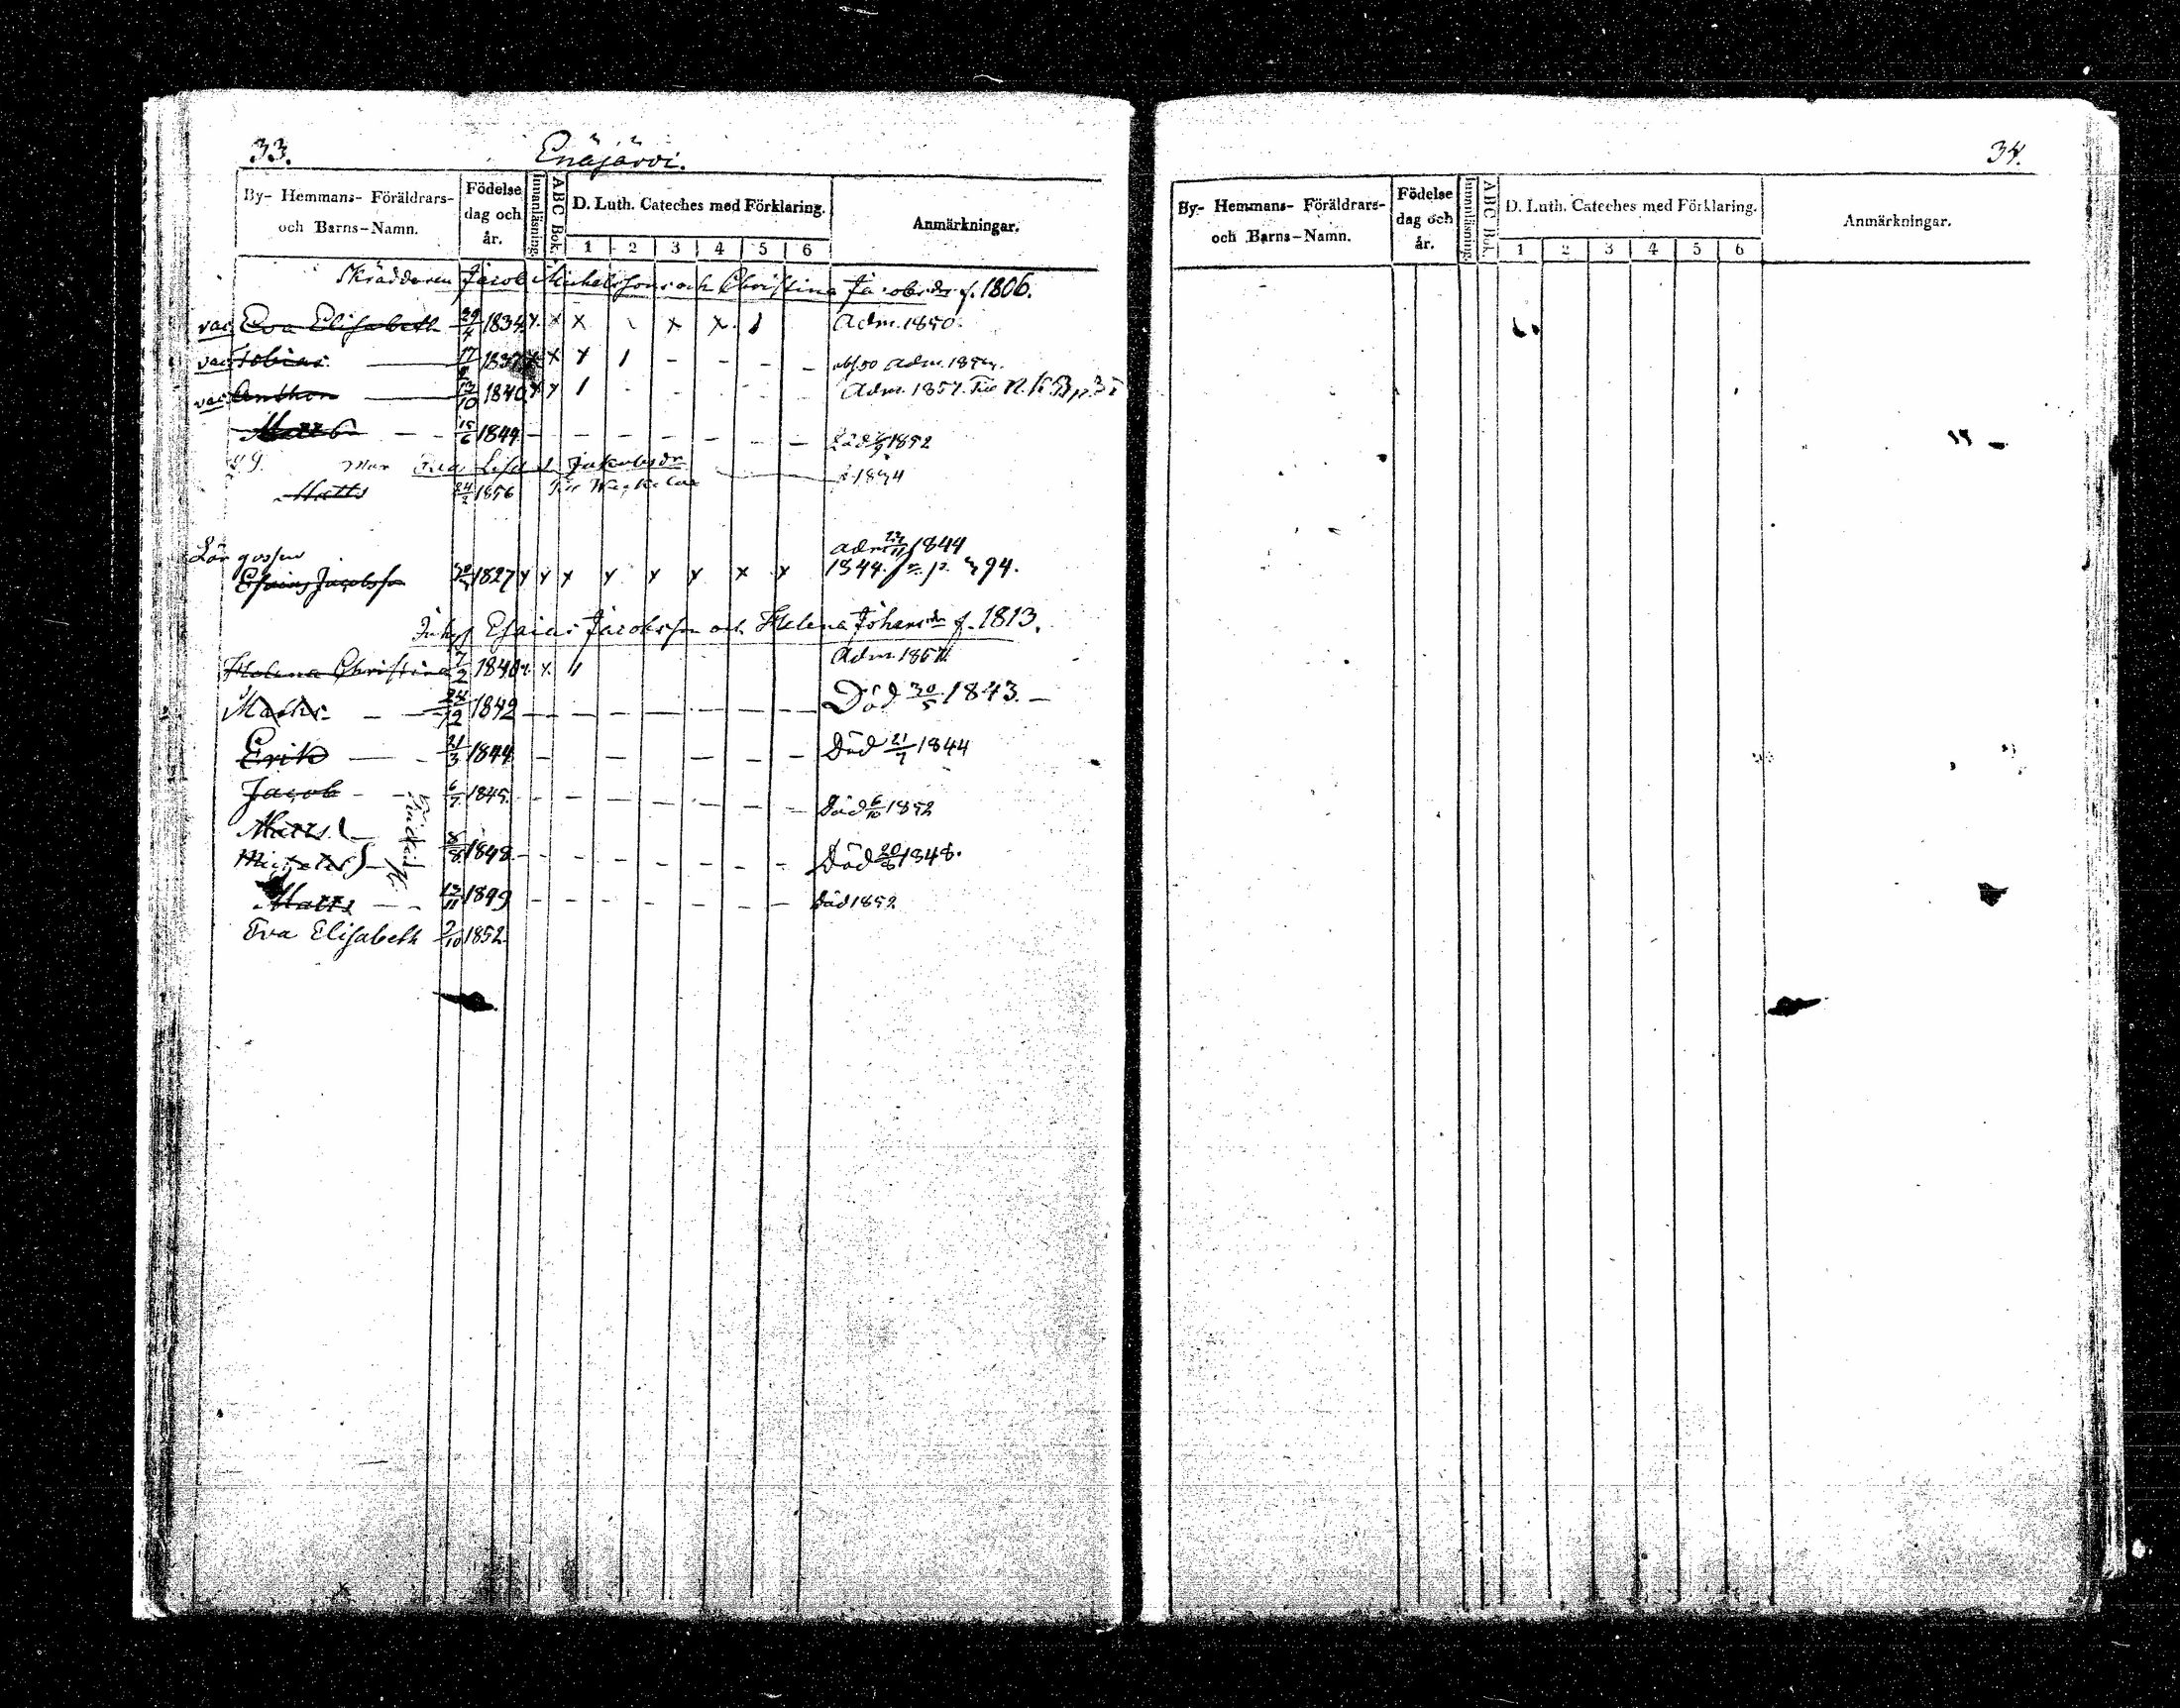 33.
Enäjärvi.
By- Hemmans- Föräldrars- och Barns-Namn.
Födelse dag och år.
Innanläsning.
ABC Bok.
D. Luth. Cateches med Förklaring.
1 2 3 4 5 6
Anmärkningar.
Skräddaren Jacob Michelsson och Christina Jacobsdr f. 1806.
vac Eva Elisabeth 29/4 1834 x x x x x Adm. 1850.
vac Tobias 1837 x x x
vac Anthon 13/10 1840 x x Adm. 1857.
Matts 15/6 1844 - - - - - - - 1852
Jakobsdr
Matts 24/2 1856
gossen
Esaias Jacobsson 1827 x x x x x x x x adm 1844
1844. p. 94.
Inhys Esaias Jacobsson och Helena Johansdr f. 1813.
Helena Christina 7/2 1840 x x Adm.
Matts - 1842 - - - - - - Död 30/5 1843. -
Erik - 21/3 1844 - - - - Död 21/7 1844
Jacob - 6/7 1845. - - - - - - Död 6/10 1852
Matts
Michel 1848 - - - - - - Död 1848.
Matts - - 13/11 1849 - - - - - - Död 1852.
Eva Elisabeth 9/10 1852.
34.
By- Hemmans- Föräldrars- och Barns-Namn.
Födelse dag och år.
Innanläsning.
ABC Bok.
D. Luth. Cateches med Förklaring.
1 2 3 4 5 6
Anmärkningar.